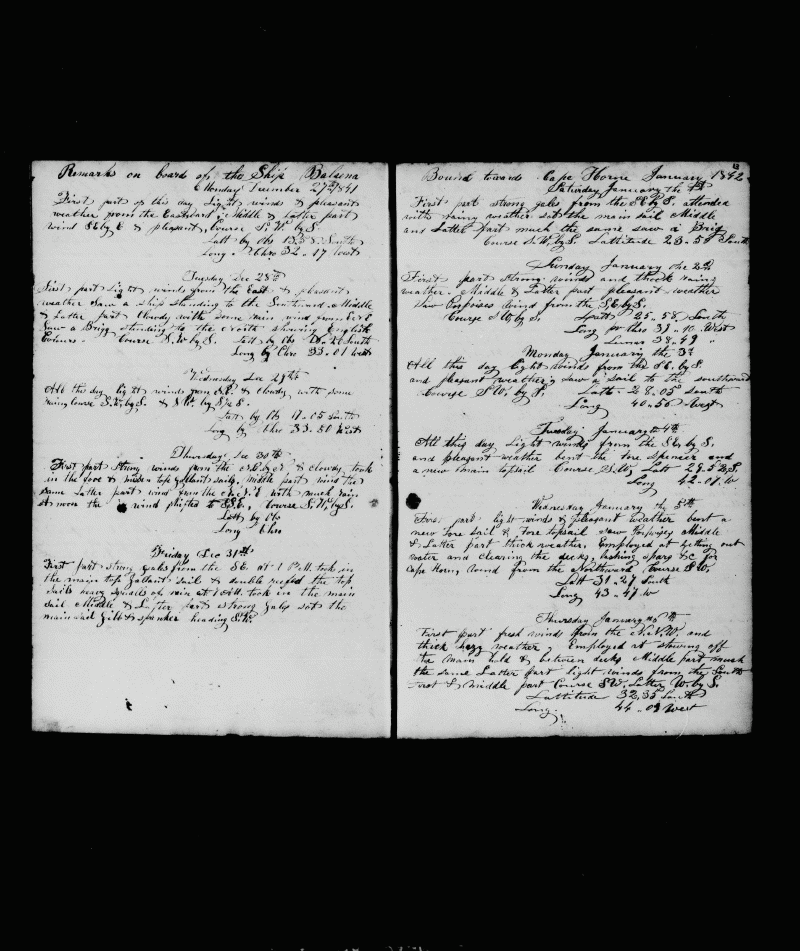 Remarks on board of the Ship Balaena
Monday December 27th 1841
First part of this day Light winds & pleasant
weather from the Eastward. Middle & Latter part
wind SE by E & pleasant, Course S.W. by S.
Latt by Obs South
Long. Chro 32 .. 17 West
Tuesday Dec 28th
First part Light winds from the East & pleasant
weather Saw a Ship Standing to the Southward. Middle
& Latter part Cloudy with some rain wind from
Saw a Brig Standing to the North showing English
Colours. Course S.W. by S. Latt by Obs South
Long by Chro 33 .. 01 West
Wednesday Dec 29th
All this day light winds from SE. & Cloudy with some
rain Course S.W. by S. & SW. by
Latt by Obs .. 05 South
Long by Chro 33 .. 50 West
Thursday Dec 30th
First part strong winds from the & cloudy took
in the fore & mizen top gallant sails, Middle part wind the
same Latter part wind from the with much rain
At noon the wind shifted to Course S.W. by S.
Latt by Obs
Long Chro
Friday Dec 31st
First part strong gales from the SE. at 1 P.M. took in
the main top Gallant sail & double reefed the top
Sails heavy squalls of rain at 1 AM. took in the main
sail Middle & Latter part strong gales set the
mainsail Gibb & spanker heading S.W.
13
Bound towards Cape Horne January 1842
Saturday January the 1st
First part strong gales from the SE by S. attended
with rainy weather set the main sail Middle
and Latter part much the same saw a Brig
Course S.W. by S. Lattitude 23 .. 59 South
Sunday January the 2d
First part strong winds and thick rainy
weather. Middle & Latter part pleasant weather
Saw Porpoises wind from the SE by S.
Course SW by S. Latt 25 .. 58 South
Long pr Chro 39 .. 10 West
Lunar 38 .. 49 "
Monday January the 3d
All this day light winds from the SE. by S.
and pleasant weather, saw a sail to the southward
Course SW. by S. Latt 28 .. 05 South
Long 40 .. 56 West
Tuesday January the 4th
All this day Light winds from the SE. by S.
and pleasant weather bent the fore spencer and
a new main topsail Course S.W. Latt 29 .. 52 S.
Long 42 .. 01 W
Wednesday January the 5th
First part light winds & pleasant weather bent a
new fore sail & fore topsail saw Porpoises Middle
& Latter part thick weather. Employed at getting out
water and clearing the decks, lashing spars &c for
Cape Horn, wind from the Northward Course SW.
Latt 31 .. 27 South
Long 43 .. 47 W
Thursday January 6th
First part fresh winds from the N.N.W. and
thick hazy weather, Employed at stowing off
the main hold & between decks Middle part much
the same Latter part light winds from the South
first & middle part Course SW. Latter W. by S.
Lattitude 32 .. 35 South
Long. 44 .. 09 West